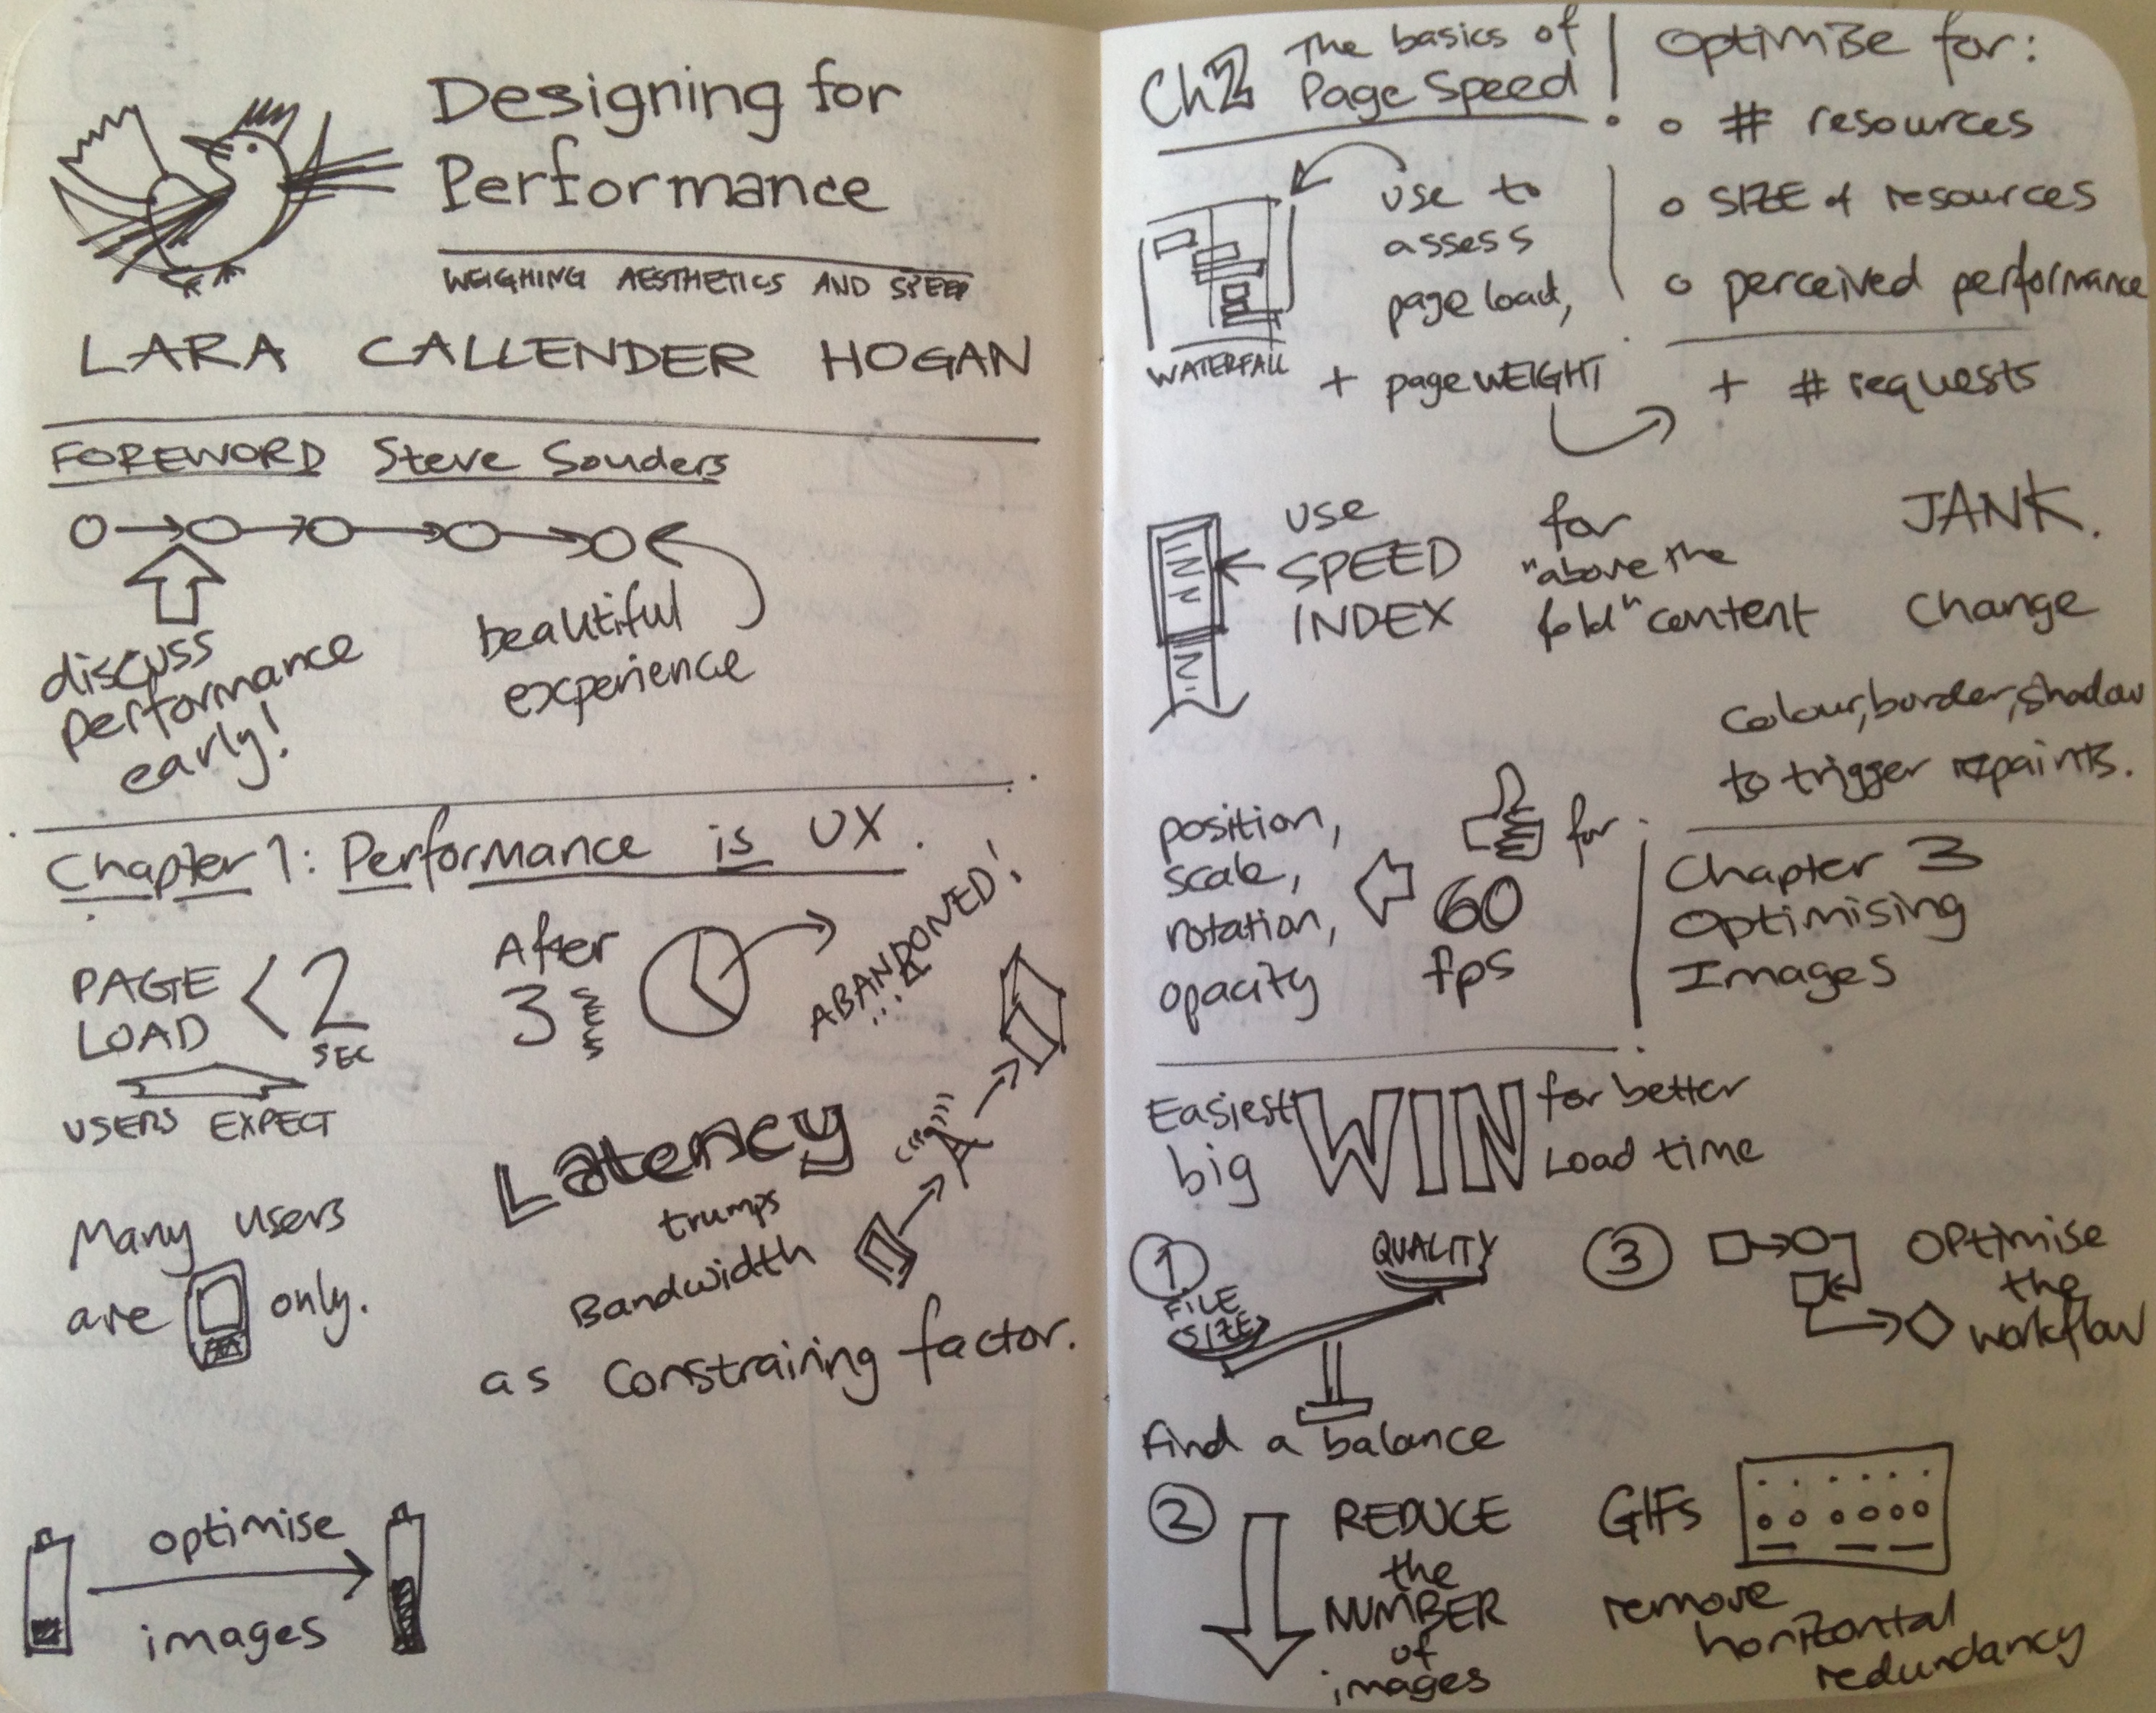 Designing for
Performance
WEIGHING AESTHETICS AND SPEED
LARA CALLENDER HOGAN
FOREWORD Steve Souders
discuss
performance
early!
beautiful
experience
Chapter 1: Performance is UX.
PAGE
LOAD < 2
SEC
USERS EXPECT
After
3 secs
ABANDONED!
Many users
are only.
Latency
trumps
Bandwidth
as constraining factor.
optimise
images
Ch2 The basics of
Page Speed
use to
assess
page load,
WATERFALL
+ page WEIGHT
Optimise for:
# resources
SIZE of resources
perceived performance
+ # requests
use
SPEED
INDEX
for
"above the
fold" content
JANK.
Change
colour, border, shadow
to trigger repaints.
position,
scale,
rotation,
opacity
for
60
fps
Chapter 3
Optimising
Images
Easiest
big
WIN
for better
Load time
1
FILE
SIZE
QUALITY
find a balance
2
REDUCE
the
NUMBER
of
images
3
OPtimise
the
workflow
GIFs
remove
horizontal
redundancy